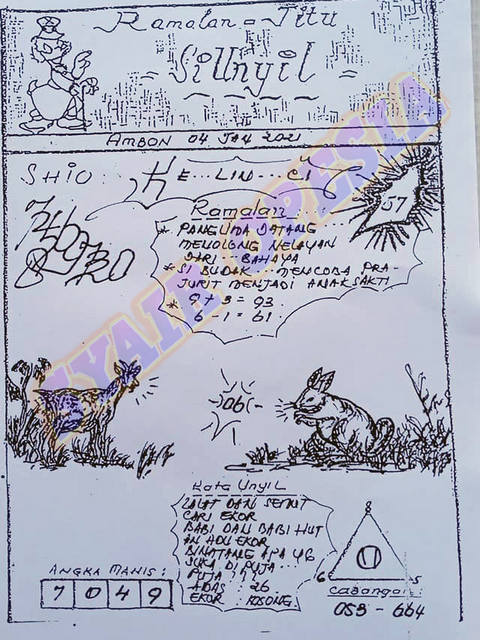 Ramalan = Jitu
= SiUnyil =
AMBON 04 JAN 2021
SHIO KE..LIN...CI
57
Ramalan :
* PANGLIMA DATANG
MENOLONG NELAYAN
DARI..BAHAYA
* SI BUDAK...MENCOBA PRA-
JURIT MENJADI ANAK SAKTI
* 9 + 3 = 93.
6 - 1 = 61.
-06(-
Kata Unyil
LALAT DAN SEMUT
CARI EKOR
BABI DAN BABI HUT
AN ADU EKOR
BINATANG APA YG
SUKA DI PUJA...
PUJA ? ? ?
: 26
EKOR : KOSONG.
ANGKA MANIS :
7 0 4 9
8
6 5
CABANGAN :
053 - 664